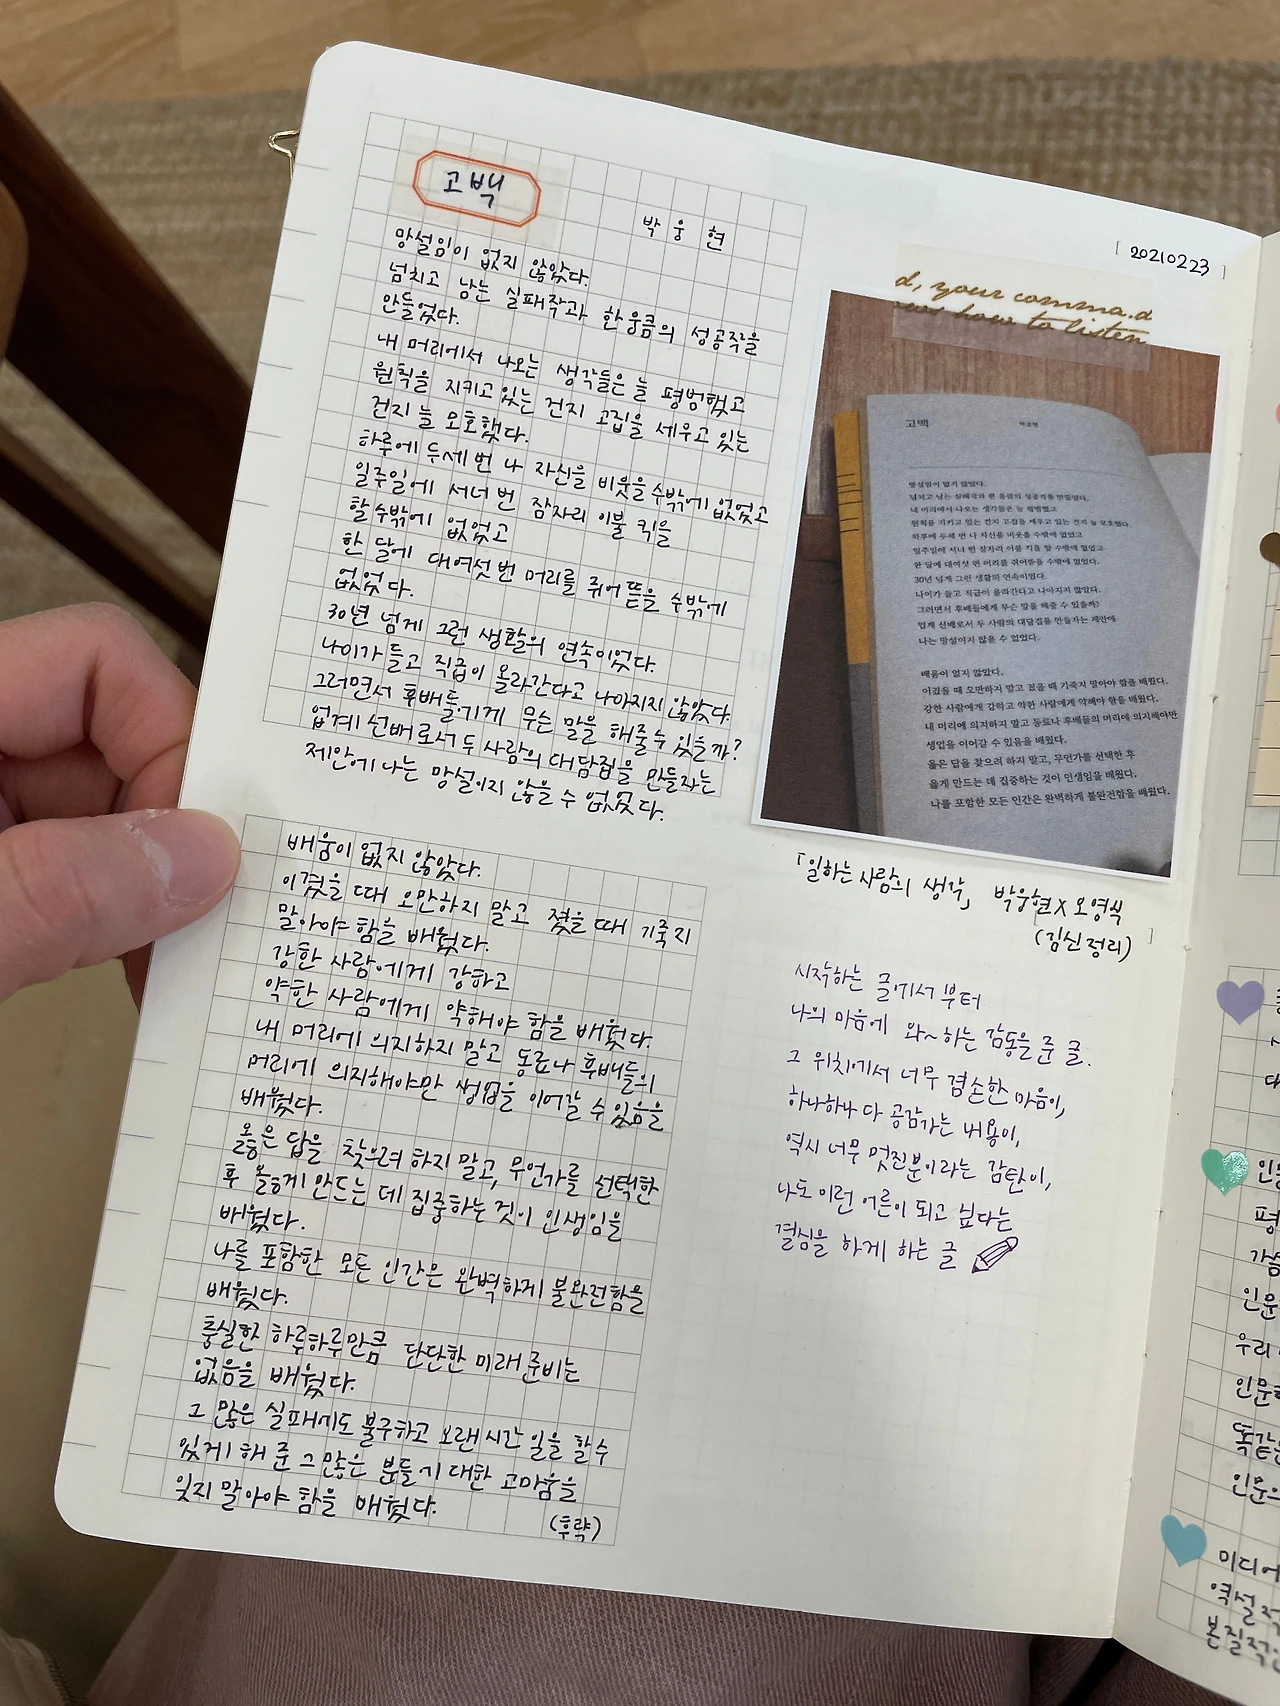 고백
박웅현
망설임이 없지 않았다.
넘치고 남는 실패작과 한 웅큼의 성공작을
만들었다.
내 머리에서 나오는 생각들은 늘 평범했고
원칙을 지키고 있는 건지 고집을 세우고 있는
건지 늘 모호했다.
하루에 두세 번 나 자신을 비웃을 수밖에 없었고
일주일에 서너 번 잠자리 이불 킥을
할 수밖에 없었고
한 달에 대여섯 번 머리를 쥐어뜯을 수밖에
없었다.
30년 넘게 그런 생활의 연속이었다.
나이가 들고 직급이 올라간다고 나아지지 않았다.
그러면서 후배들에게 무슨 말을 해줄 수 있을까?
업계 선배로서 두 사람의 대담집을 만들자는
제안에 나는 망설이지 않을 수 없었다.
배움이 없지 않았다.
이겼을 때 오만하지 말고 졌을 때 기죽지
말아야 함을 배웠다.
강한 사람에게 강하고
약한 사람에게 약해야 함을 배웠다.
내 머리에 의지하지 말고 동료나 후배들의
머리에 의지해야만 생업을 이어갈 수 있음을
배웠다.
옳은 답을 찾으려 하지 말고, 무언가를 선택한
후 옳게 만드는 데 집중하는 것이 인생임을
배웠다.
나를 포함한 모든 인간은 완벽하게 불완전함을
배웠다.
충실한 하루하루만큼 단단한 미래 준비는
없음을 배웠다.
그 많은 실패에도 불구하고 오랜 시간 일을 할 수
있게 해 준 그 많은 분들에 대한 고마움을
잊지 말아야 함을 배웠다.
(후략)
[20210223]
d, your comma.d
ws how to listen
고백
박웅현
망설임이 없지 않았다.
넘치고 남는 실패작과 한 웅큼의 성공작을 만들었다.
내 머리에서 나오는 생각들은 늘 평범했고
원칙을 지키고 있는 건지 고집을 세우고 있는 건지 늘 모호했다.
하루에 두세 번 나 자신을 비웃을 수밖에 없었고
일주일에 서너 번 잠자리 이불 킥을 할 수밖에 없었고
한 달에 대여섯 번 머리를 쥐어뜯을 수밖에 없었다.
30년 넘게 그런 생활의 연속이었다.
나이가 들고 직급이 올라간다고 나아지지 않았다.
그러면서 후배들에게 무슨 말을 해줄 수 있을까?
업계 선배로서 두 사람의 대담집을 만들자는 제안에
나는 망설이지 않을 수 없었다.
배움이 없지 않았다.
이겼을 때 오만하지 말고 졌을 때 기죽지 말아야 함을 배웠다.
강한 사람에게 강하고 약한 사람에게 약해야 함을 배웠다.
내 머리에 의지하지 말고 동료나 후배들의 머리에 의지해야만
생업을 이어갈 수 있음을 배웠다.
옳은 답을 찾으려 하지 말고, 무언가를 선택한 후
옳게 만드는 데 집중하는 것이 인생임을 배웠다.
나를 포함한 모든 인간은 완벽하게 불완전함을 배웠다.
「일하는 사람의 생각」 박웅현 X 오영식
(김신 정리)
시작하는 글에서부터
나의 마음에 와~ 하는 감동을 준 글.
그 위치에서 너무 겸손한 마음이,
하나하나 다 공감가는 내용이,
역시 너무 멋진분이라는 감탄이,
나도 이런 어른이 되고 싶다는
결심을 하게 하는 글
평
인문
우리
인문
똑같은
인문
미디어
역설적
본질적인